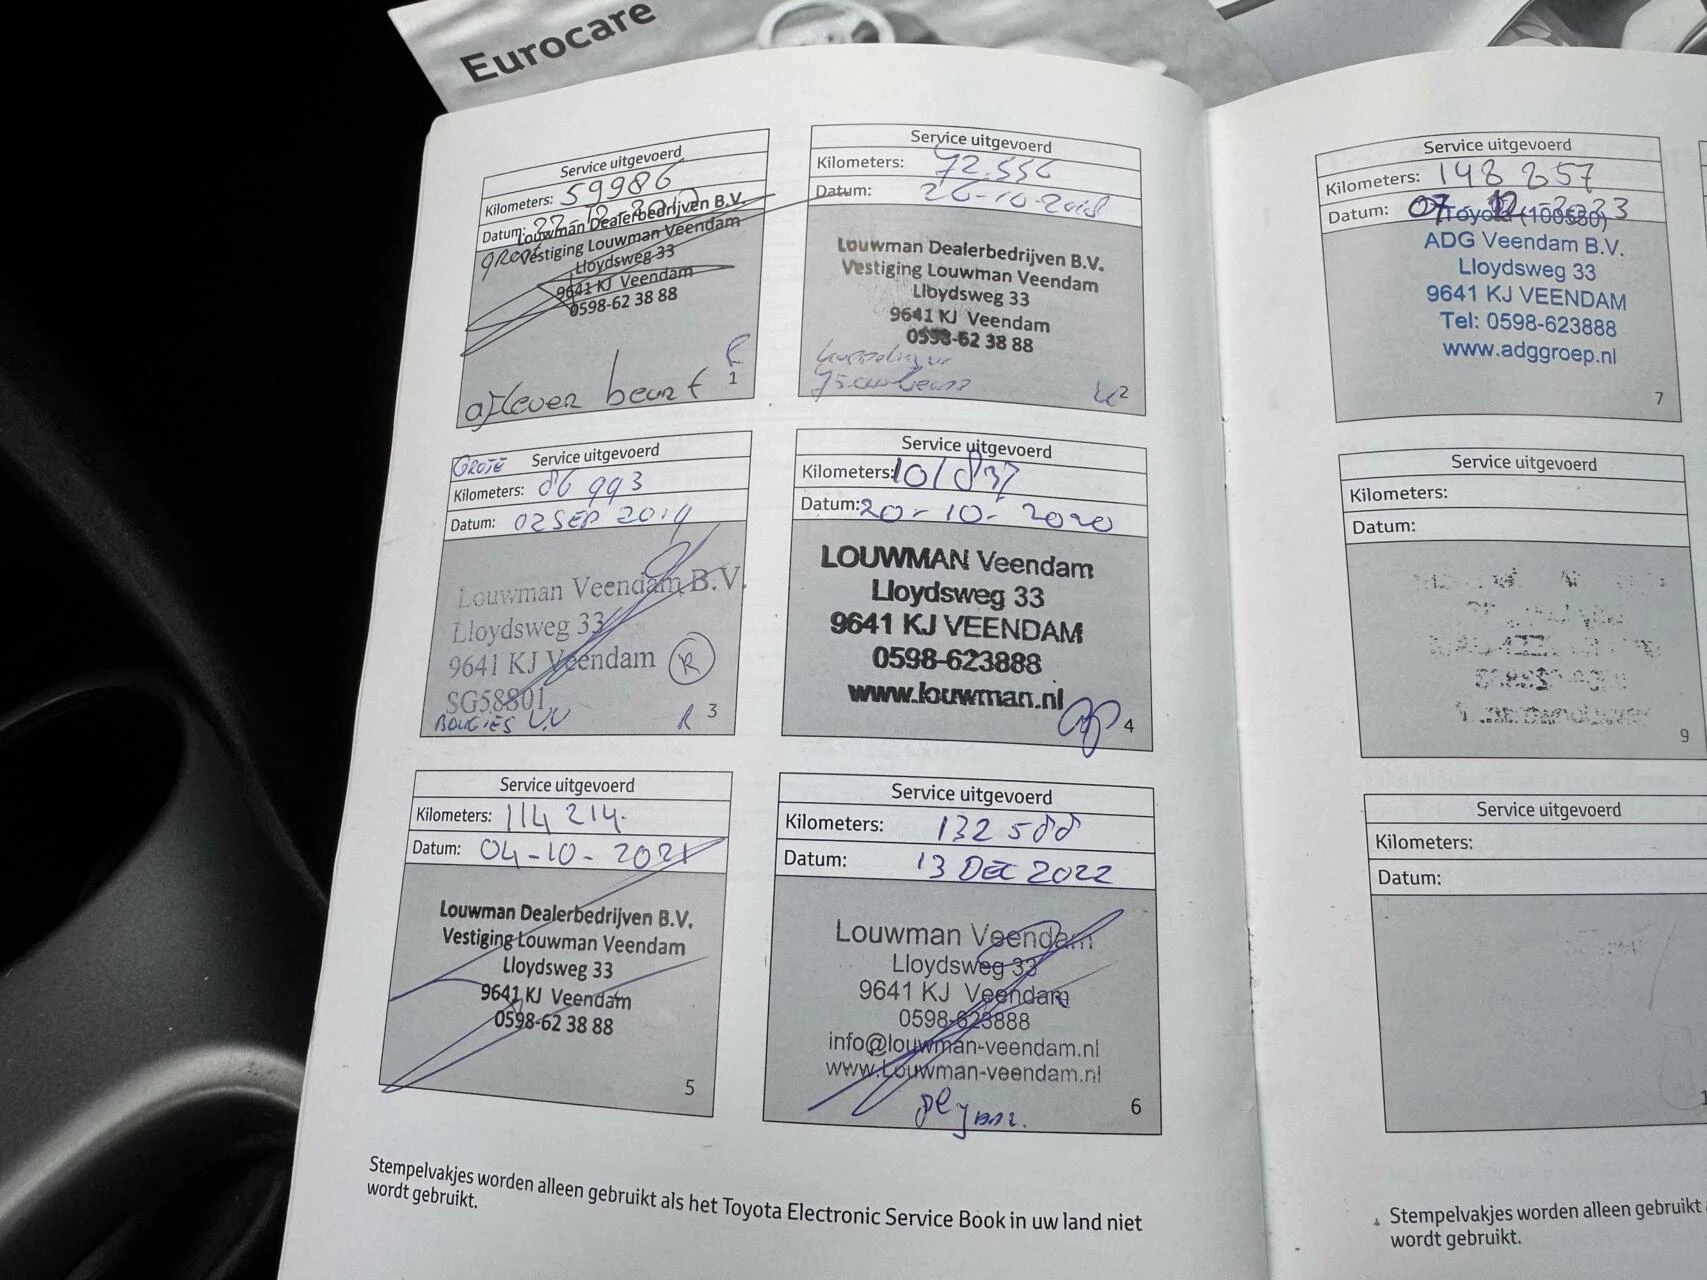 Eurocare
Service uitgevoerd
Kilometers: 59986
Datum:
Louwman Dealerbedrijven B.V.
Vestiging Louwman Veendam
Lloydsweg 33
9641 KJ Veendam
0598-62 38 88
aflever beurt
1
Service uitgevoerd
Kilometers: 72.556
Datum: 26-10-2018
Louwman Dealerbedrijven B.V.
Vestiging Louwman Veendam
Lloydsweg 33
9641 KJ Veendam
0598-62 38 88
2
GROTE Service uitgevoerd
Kilometers: 86 993
Datum: 02 SEP 2019
Louwman Veendam B.V.
Lloydsweg 33
9641 KJ Veendam
SG58801
R
BOUGIES VV
R 3
Service uitgevoerd
Kilometers: 101837
Datum: 20-10-2020
LOUWMAN Veendam
Lloydsweg 33
9641 KJ VEENDAM
0598-623888
www.louwman.nl
4
Service uitgevoerd
Kilometers: 114 214.
Datum: 04-10-2021
Louwman Dealerbedrijven B.V.
Vestiging Louwman Veendam
Lloydsweg 33
9641 KJ Veendam
0598-62 38 88
5
Service uitgevoerd
Kilometers: 132 588
Datum: 13 DEC 2022
Louwman Veendam
Lloydsweg 33
9641 KJ Veendam
0598-623888
info@louwman-veendam.nl
www.Louwman-veendam.nl
6
Stempelvakjes worden alleen gebruikt als het Toyota Electronic Service Book in uw land niet
wordt gebruikt.
Service uitgevoerd
Kilometers: 148 857
Datum: 07 12 -2023
Toyota (100580)
ADG Veendam B.V.
Lloydsweg 33
9641 KJ VEENDAM
Tel: 0598-623888
www.adggroep.nl
7
Service uitgevoerd
Kilometers:
Datum:
9
Service uitgevoerd
Kilometers:
Datum:
Stempelvakjes worden alleen gebruikt
wordt gebruikt.